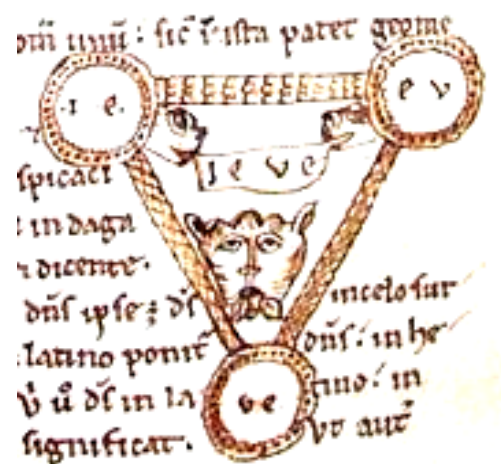 sic̄ ista patet geome
.ı e. e v
ı e v e
spicaci
in daga
dicente.
dn̄s ipse ; ds̄ in celo sur
latino ponit̄ dn̄s : in he
ds̄ in la v e tino : in
significat. aut̄